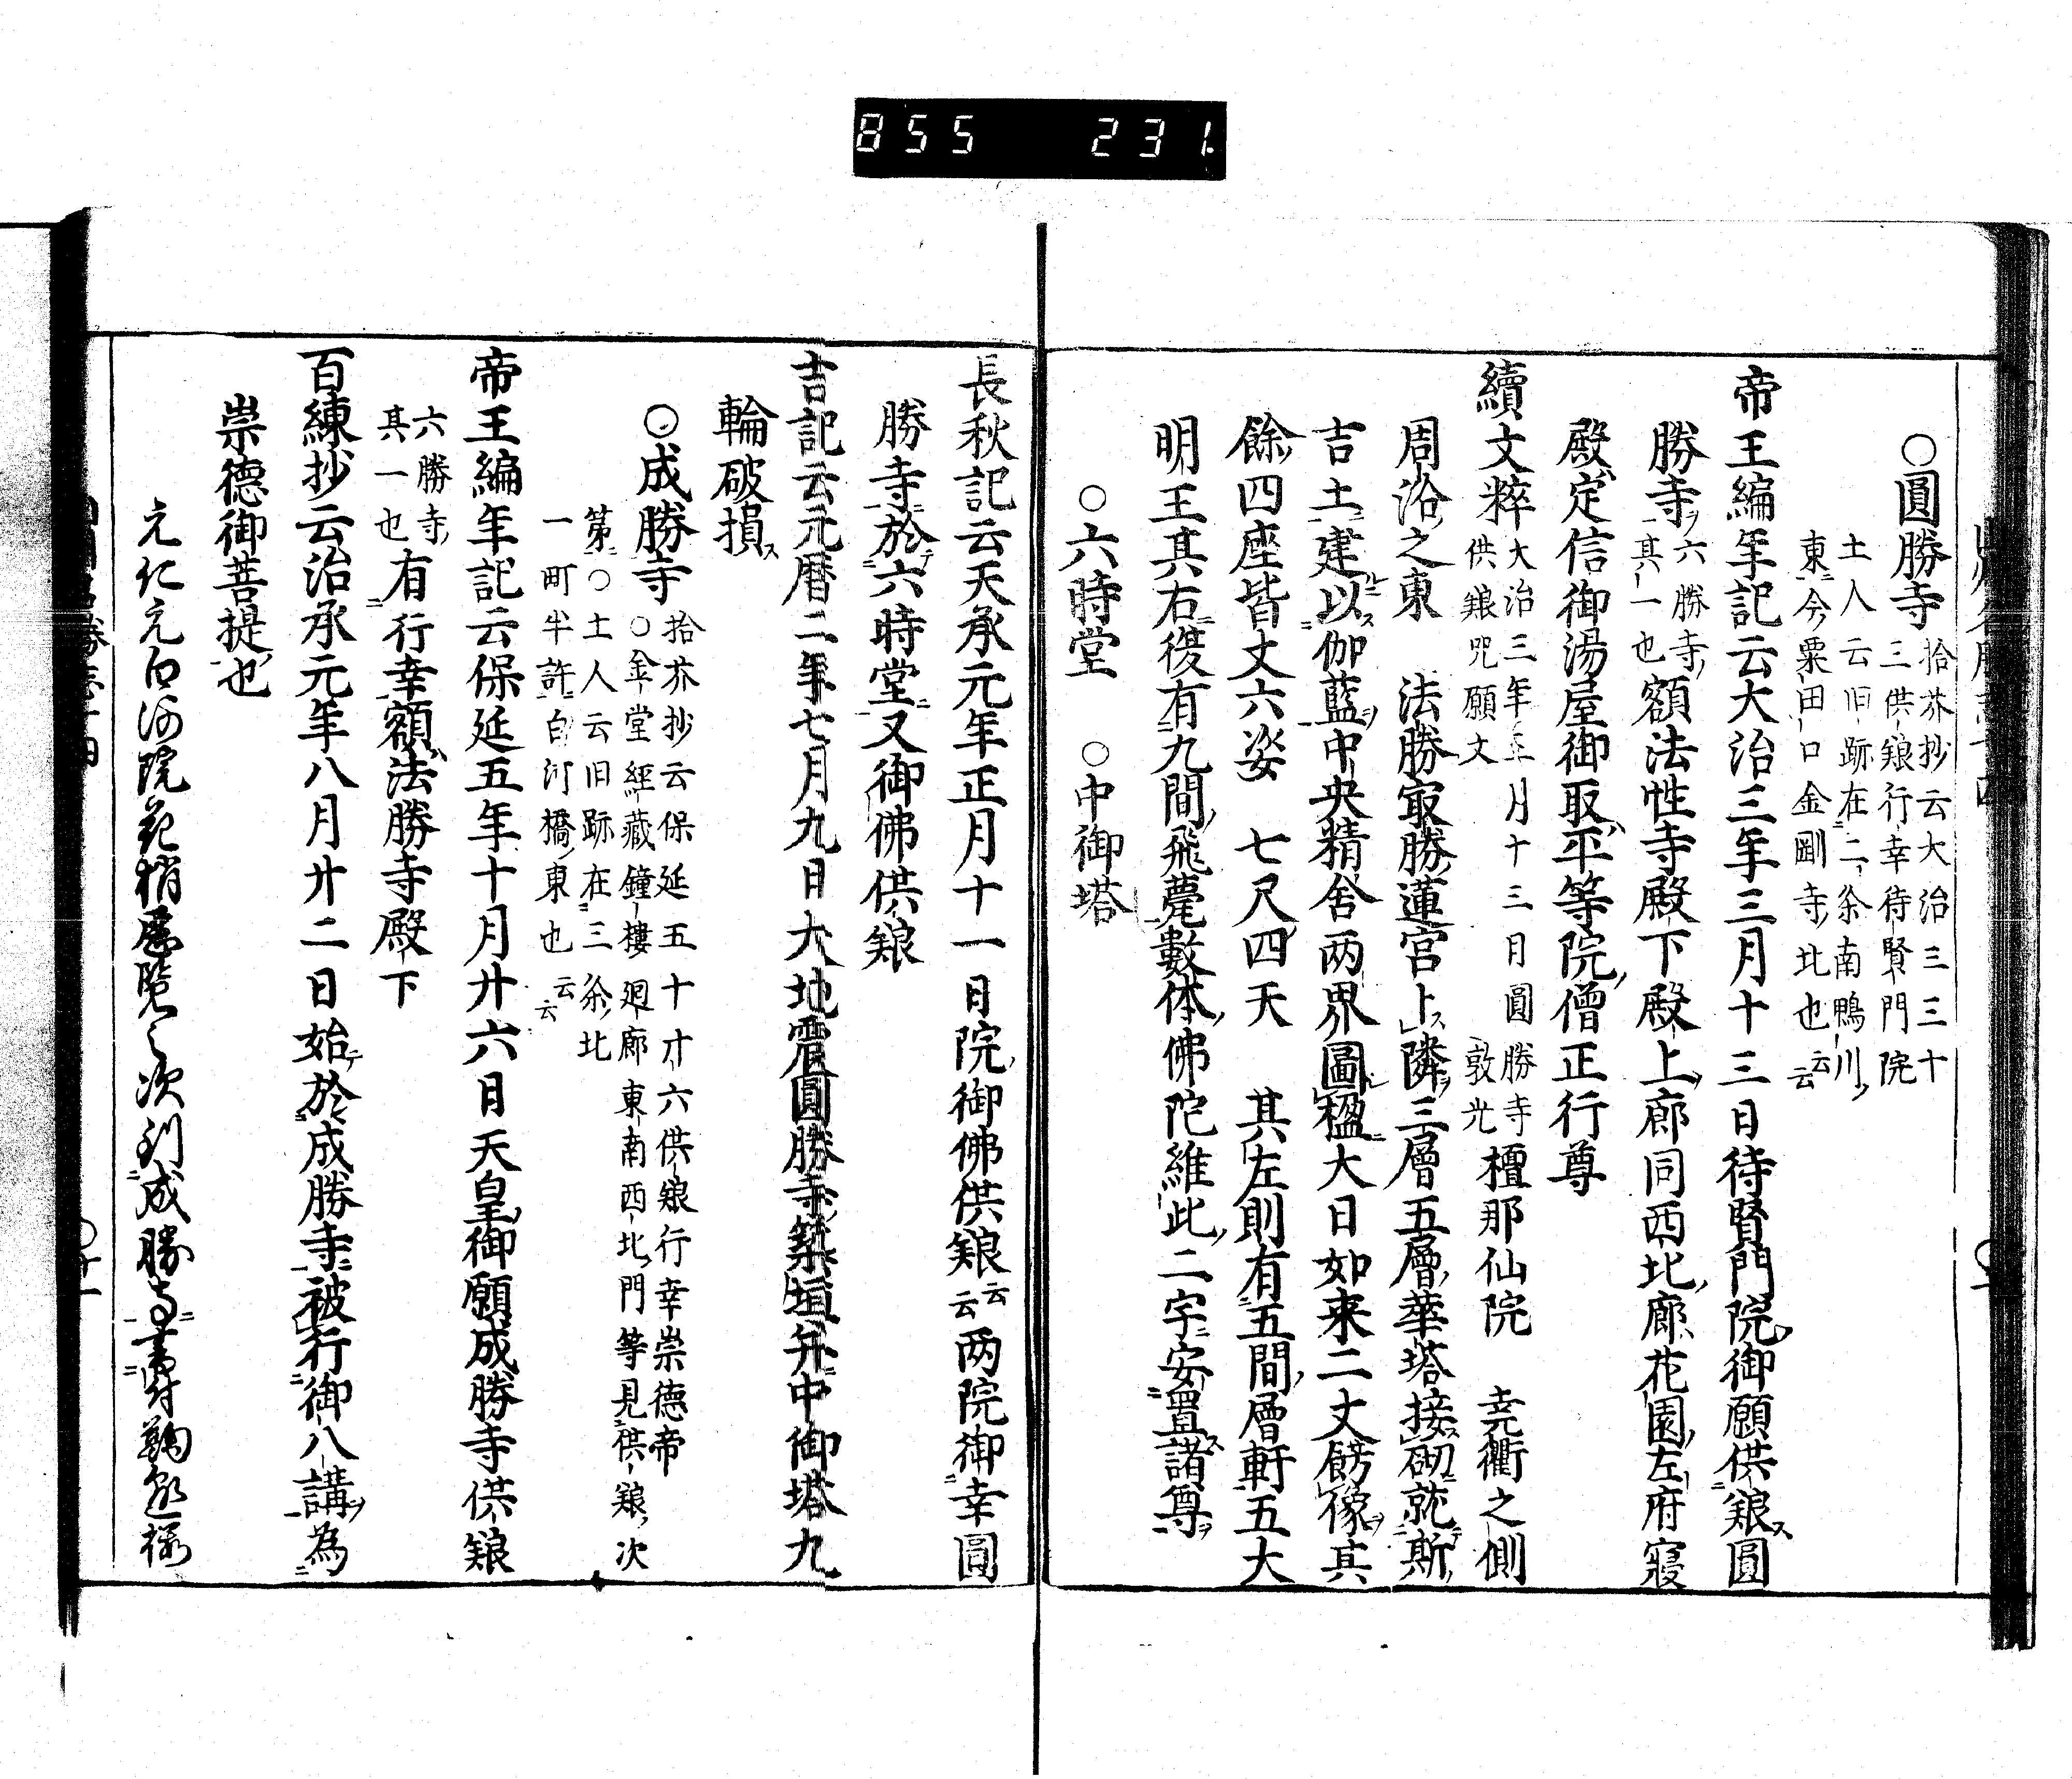 855 231
○圓勝寺
拾芥抄云大治三三十
三供-䊹行幸待-賢-門院
土人云旧-跡在二-条南鴨-川
東今粟-田-口金剛寺北也云云
帝王編年記云大治三年三月十三日待賢門院御願供䊹ス圓
勝寺六勝寺
其一也額法性寺殿下殿上廊同西北廊花園左府寢
殿定信御湯屋御取平等院僧正行尊
續文粹大治三年三月十三日圓勝寺
供䊹咒願文敦光檀那仙院 堯衢之側
周洛之東 法勝㝡勝蓮宮卜ス隣三層五層華塔接砌就斯
吉土建以伽藍中央精舍両界圖楹大日如来二丈餝像其
餘四座皆丈六姿 七尺四天 其左則有五間層軒五大
明王其右復有九間飛甍數体佛陀維此二宇安置諸尊
○六時堂 ○中御塔
長秋記云天承元年正月十一日院御佛供䊹云云両院御幸圓
勝寺於六時堂又御佛供䊹
吉記云元暦二年七月九日大地震圓勝寺築垣并中御塔九
輪破損ス
○成勝寺
拾芥抄云保延五十廿六供-䊹行幸崇德帝
○金堂經藏鐘-樓廻-廊東-南西-北門等見供-䊹次
第○土人云旧跡在三条北
一町半許白河橋東也云云
帝王編年記云保延五年十月廿六日天皇御願成勝寺供-䊹
六勝寺
其一也有行幸額法勝寺殿下
百練抄云治承元年八月廿二日始於成勝寺被行御八講為
崇德御菩提也
元仁元白河院花梢歴覧之次到成勝寺